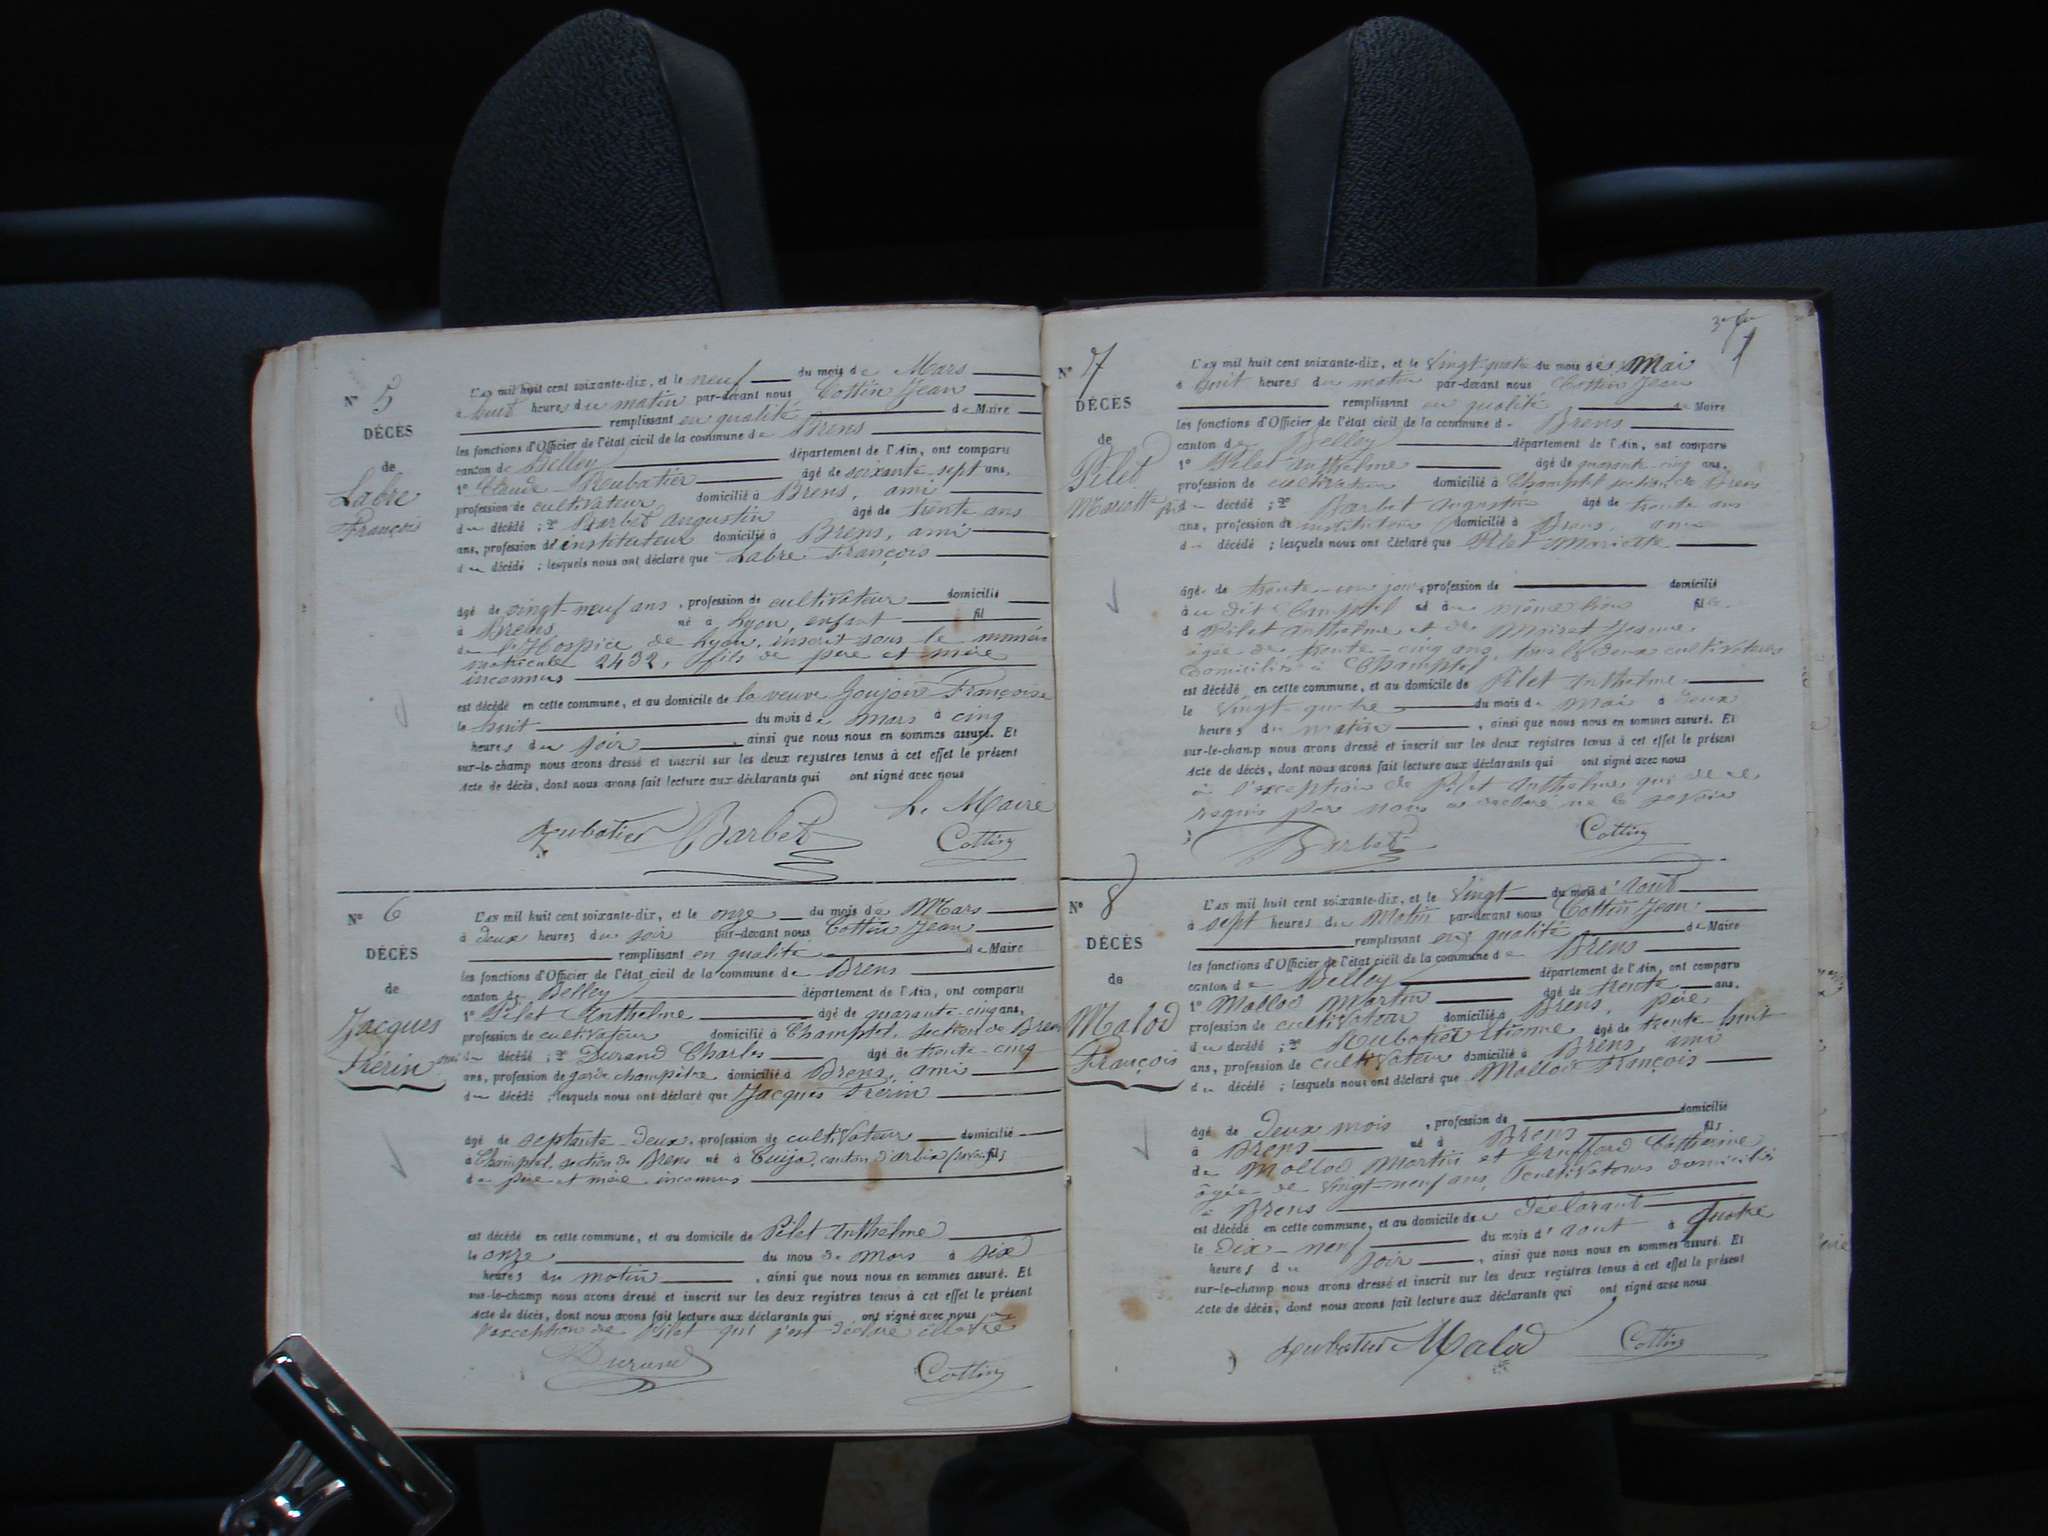 N° 5
DÉCÈS
de
Labre
François
L'AN mil huit cent soixante-dix, et le neuf du mois de Mars
à huit heures du matin par-devant nous Cottin Jean
remplissant en qualité de Maire
les fonctions d'Officier de l'état civil de la commune de Brens
canton de Belley département de l'Ain, ont comparu
1° Claude Rubatier âgé de soixante-sept ans,
profession de cultivateur domicilié à Brens, ami
du décédé ; 2° Barbet Augustin âgé de trente ans
ans, profession de instituteur domicilié à Brens, ami
du décédé ; lesquels nous ont déclaré que Labre François
âgé de vingt-neuf ans, profession de cultivateur domicilié
à Brens né à Lyon, enfant fil
de l'Hospice de Lyon, inscrit sous le numéro
matricule 2432, fils de père et mère
inconnus
est décédé en cette commune, et au domicile de la veuve Goujoin Françoise
le huit du mois de mars à cinq
heures du soir, ainsi que nous nous en sommes assuré. Et
sur-le-champ nous avons dressé et inscrit sur les deux registres tenus à cet effet le présent
Acte de décès, dont nous avons fait lecture aux déclarants qui ont signé avec nous
Le Maire
Rubatier Barbet Cottin
N° 6
DÉCÈS
de
Jacques
Frérin
L'AN mil huit cent soixante-dix, et le onze du mois de Mars
à deux heures du soir par-devant nous Cottin Jean
remplissant en qualité de Maire
les fonctions d'Officier de l'état civil de la commune de Brens
canton de Belley département de l'Ain, ont comparu
1° Pilet Anthelme âgé de quarante-cinq ans,
profession de cultivateur domicilié à Champtel, section de Brens
ami du décédé ; 2° Durand Charles âgé de trente-cinq
ans, profession de garde champêtre domicilié à Brens, ami
du décédé ; lesquels nous ont déclaré que Jacques Frérin
âgé de septante-deux, profession de cultivateur domicilié
à Champtel, section de Brens né à canton d'arbin (Savoie) fils
de père et mère inconnus
est décédé en cette commune, et au domicile de Pilet Anthelme
le onze du mois de mars à six
heures du matin, ainsi que nous nous en sommes assuré. Et
sur-le-champ nous avons dressé et inscrit sur les deux registres tenus à cet effet le présent
Acte de décès, dont nous avons fait lecture aux déclarants qui ont signé avec nous à
l'exception de Pilet qui s'est déclaré illettré
Durand Cottin
N° 7
DÉCÈS
de
Pilet
Mariette
L'AN mil huit cent soixante-dix, et le vingt-quatre du mois de Mai
à huit heures du matin par-devant nous Cottin Jean
remplissant en qualité de Maire
les fonctions d'Officier de l'état civil de la commune de Brens
canton de Belley département de l'Ain, ont comparu
1° Pilet Anthelme âgé de quarante-cinq ans,
profession de cultivateur domicilié à Champtel section de Brens
père du décédé ; 2° Barbet Augustin âgé de trente ans
ans, profession de instituteur domicilié à Brens, ami
du décédé ; lesquels nous ont déclaré que Pilet Mariette
âgé de trente-un jours, profession de domicilié
à au dit Camptel né à au même lieu fille
d Pilet Anthelme et de Moiret Jeanne
âgée de trente-cinq ans, tous les deux cultivateurs
domiciliés à Champtel
est décédé en cette commune, et au domicile de Pilet Anthelme
le vingt-quatre du mois de mai à deux
heures du matin, ainsi que nous nous en sommes assuré. Et
sur-le-champ nous avons dressé et inscrit sur les deux registres tenus à cet effet le présent
Acte de décès, dont nous avons fait lecture aux déclarants qui ont signé avec nous
à l'exception de Pilet Anthelme qui de ce
requis par nous a déclaré ne le savoir
Barbet Cottin
N° 8
DÉCÈS
de
Malod
François
L'AN mil huit cent soixante-dix, et le vingt du mois d'Aout
à sept heures du Matin par-devant nous Cottin Jean
remplissant en qualité de Maire
les fonctions d'Officier de l'état civil de la commune de Brens
canton de Belley département de l'Ain, ont comparu
1° Mallod Martin âgé de trente ans.
profession de cultivateur domicilié à Brens, père
du décédé ; 2° Rubatier Etienne âgé de trente-huit
ans, profession de cultivateur domicilié à Brens, ami
du décédé ; lesquels nous ont déclaré que Mallod François
âgé de deux mois, profession de domicilié
à Brens né à Brens fils
de Mallod Martin et Catherine
âgée de vingt-neuf ans, cultivateurs domiciliés
à Brens
est décédé en cette commune, et au domicile du déclarant
le dix-neuf du mois d'aout à quatre
heures du soir, ainsi que nous nous en sommes assuré. Et
sur-le-champ nous avons dressé et inscrit sur les deux registres tenus à cet effet le présent
Acte de décès, dont nous avons fait lecture aux déclarants qui ont signé avec nous
Rubatier Malod Cottin